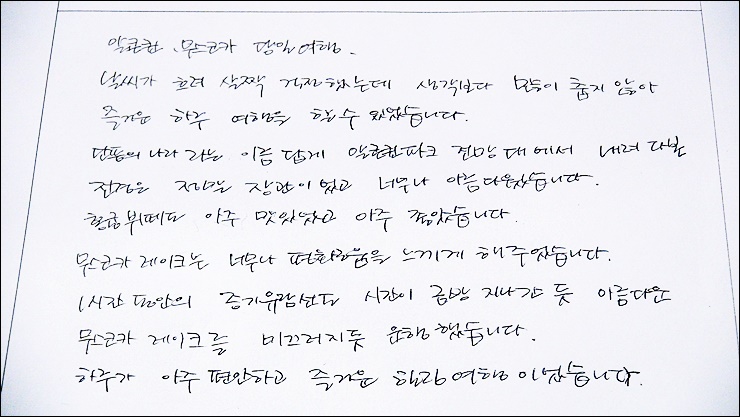 알곤퀸, 무스코카 당일여행.
날씨가 흐려 살짝 걱정했는데 생각보다 많이 춥지 않아
즐거운 하루 여행을 할수 있었습니다.
단풍의 나라 라는 이름 답게 알곤퀸파크 전망대에서 내려다본
전경은 정말 장관이었고 너무나 아름다웠습니다.
한글뷔페도 아주 맛있었고 아주 좋았습니다.
무스코카 레이크는 너무나 평화로움을 느끼게 해주었습니다.
1시간 동안의 증기유람선도 시간이 금방 지나간 듯 아름다운
무스코카 레이크를 미끄러지듯 운행했습니다.
하루가 아주 편안하고 즐거운 여행이었습니다.